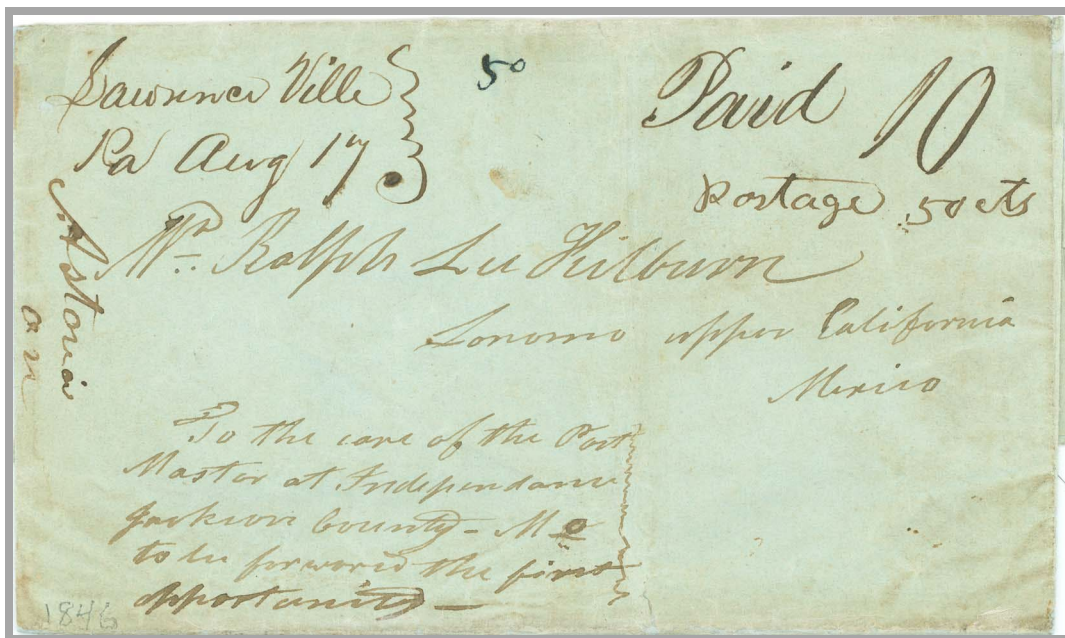 Lawrence Ville
Pa Aug 17
5o
Paid 10
Postage 50 cts
Mr. Ralph Lee Kilburn
Sonomo upper California
Mexico
Astoria
To the care of the Post
Master at Independance
Jackson County - Mo
to be forword the first
opportunity -
1846